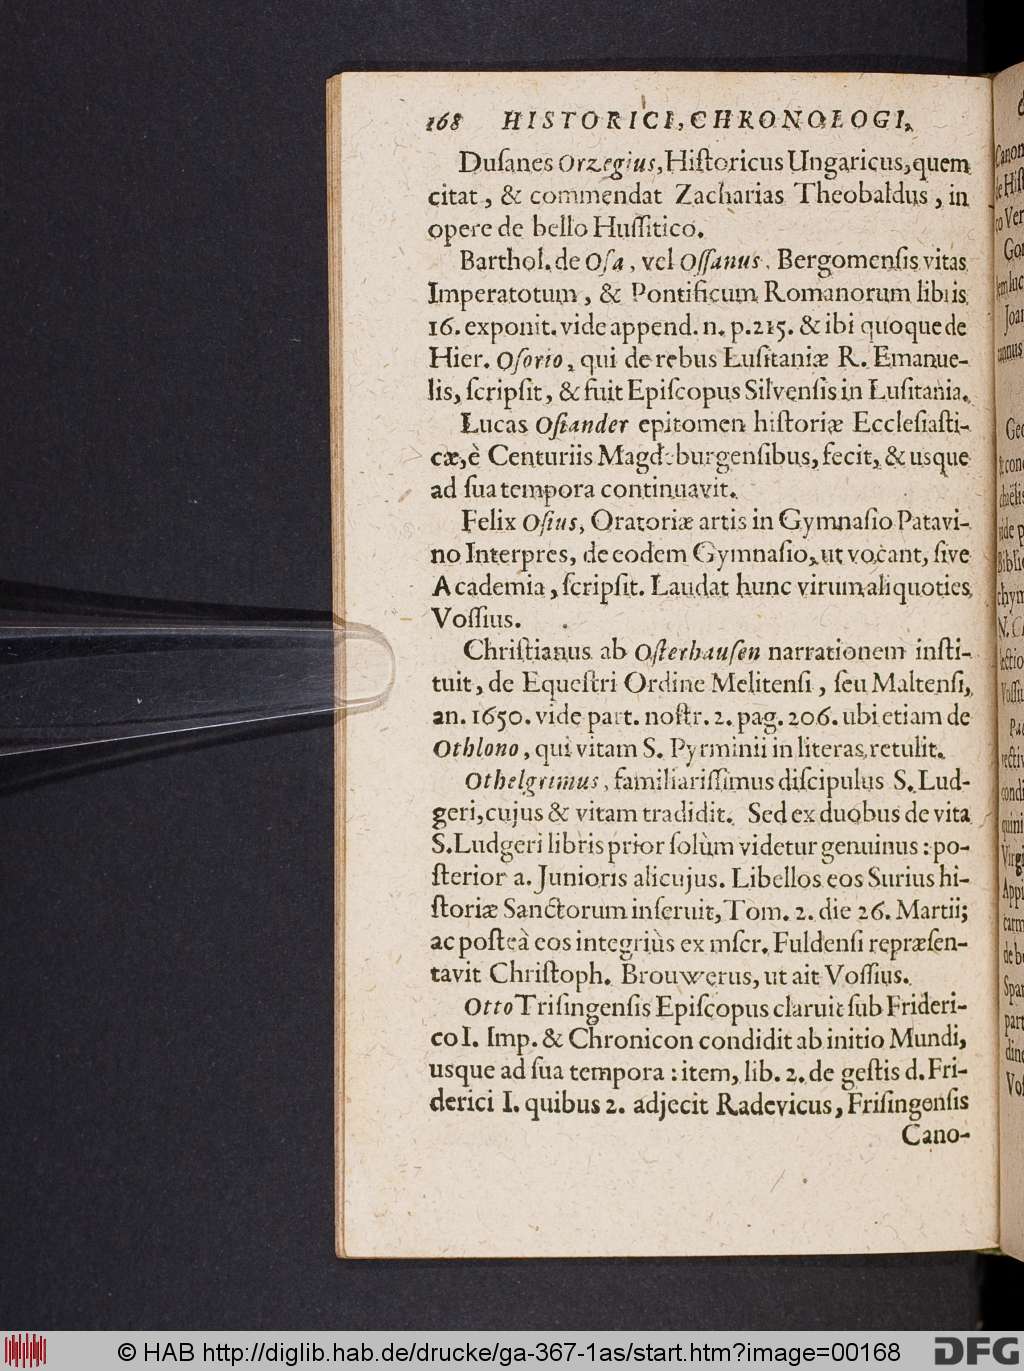 168 HISTORICI, CHRONOLOGI,
Duſanes Orzegius, Hiſtoricus Ungaricus, quem
citat, & commendat Zacharias Theobaldus, in
opere de bello Huſſitico.
Barthol. de Oſa, vel Oſſanus. Bergomenſis vitas
Imperatotum, & Pontificum Romanorum libris
16. exponit. vide append. n. p. 215. & ibi quoque de
Hier. Oſorio, qui de rebus Luſitaniæ R. Emanue-
lis, ſcripſit, & fuit Epiſcopus Silvenſis in Luſitania.
Lucas Oſiander epitomen hiſtoriæ Eccleſiaſti-
cæ, è Centuriis Magdeburgenſibus, fecit, & usque
ad ſua tempora continuavit.
Felix Oſius, Oratoriæ artis in Gymnaſio Patavi-
no Interpres, de eodem Gymnaſio, ut vocant, ſive
Academia, ſcripſit. Laudat hunc virum aliquoties
Voſſius.
Chriſtianus ab Oſterhauſen narrationem inſti-
tuit, de Equeſtri Ordine Melitenſi, ſeu Maltenſi,
an. 1650. vide part. noſtr. 2. pag. 206. ubi etiam de
Othlono, qui vitam S. Pyrminii in literas retulit.
Othelgrimus, familiariſſimus diſcipulus S. Lud-
geri, cujus & vitam tradidit. Sed ex duobus de vita
S. Ludgeri libris prior ſolùm videtur genuinus: po-
ſterior a. Junioris alicujus. Libellos eos Surius hi-
ſtoriæ Sanctorum inſeruit, Tom. 2. die 26. Martii;
ac poſteà eos integriùs ex mſcr. Fuldenſi repræſen-
tavit Chriſtoph. Brouwerus, ut ait Voſſius.
Otto Triſingenſis Epiſcopus claruit ſub Frideri-
co I. Imp. & Chronicon condidit ab initio Mundi,
usque ad ſua tempora: item, lib. 2. de geſtis d. Fri-
derici I. quibus 2. adjecit Radevicus, Friſingenſis
Cano-
© HAB http://diglib.hab.de/drucke/ga-367-1as/start.htm?image=00168
DFG